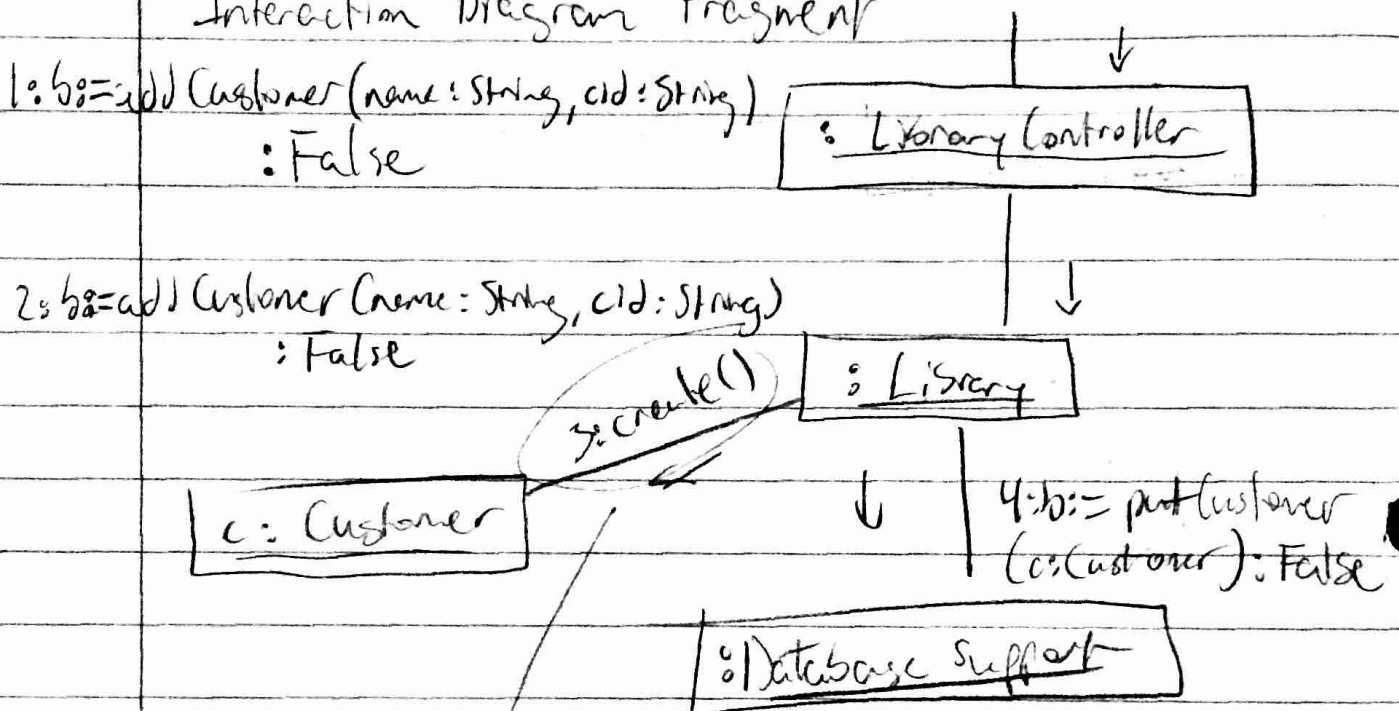 Interaction Diagram Fragment
1:b:=addCustomer(name:String,cid:String)
:False
:LibraryController
2:b:=addCustomer(name:String,cid:String)
:False
:Library
3:create()
c: Customer
4:b:=putCustomer
(c:Customer):False
:Database Support